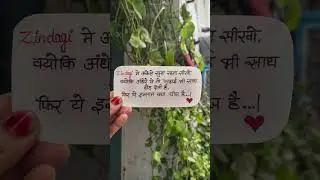 Zindagi मे अकेले रहना सीखो,
क्योकि अंधेरे मे तो परछाई भी साथ
छोड़ देती है,
फिर ये इन्सान क्या चीज है...|